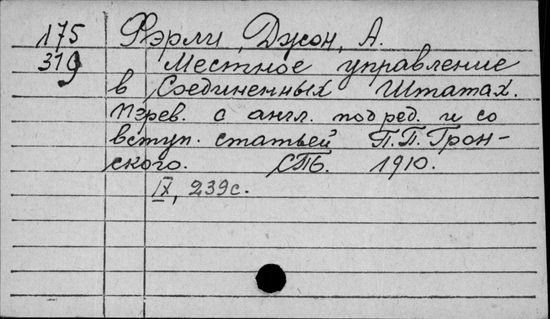 175 Фэрли, Джон, А.
319 Местное управление
в Соединенных Штатах.
Перев. с англ. под ред. и со
вступ. статьей П.П. Грон-
ского. СПб. 1910.
IX, 239с.